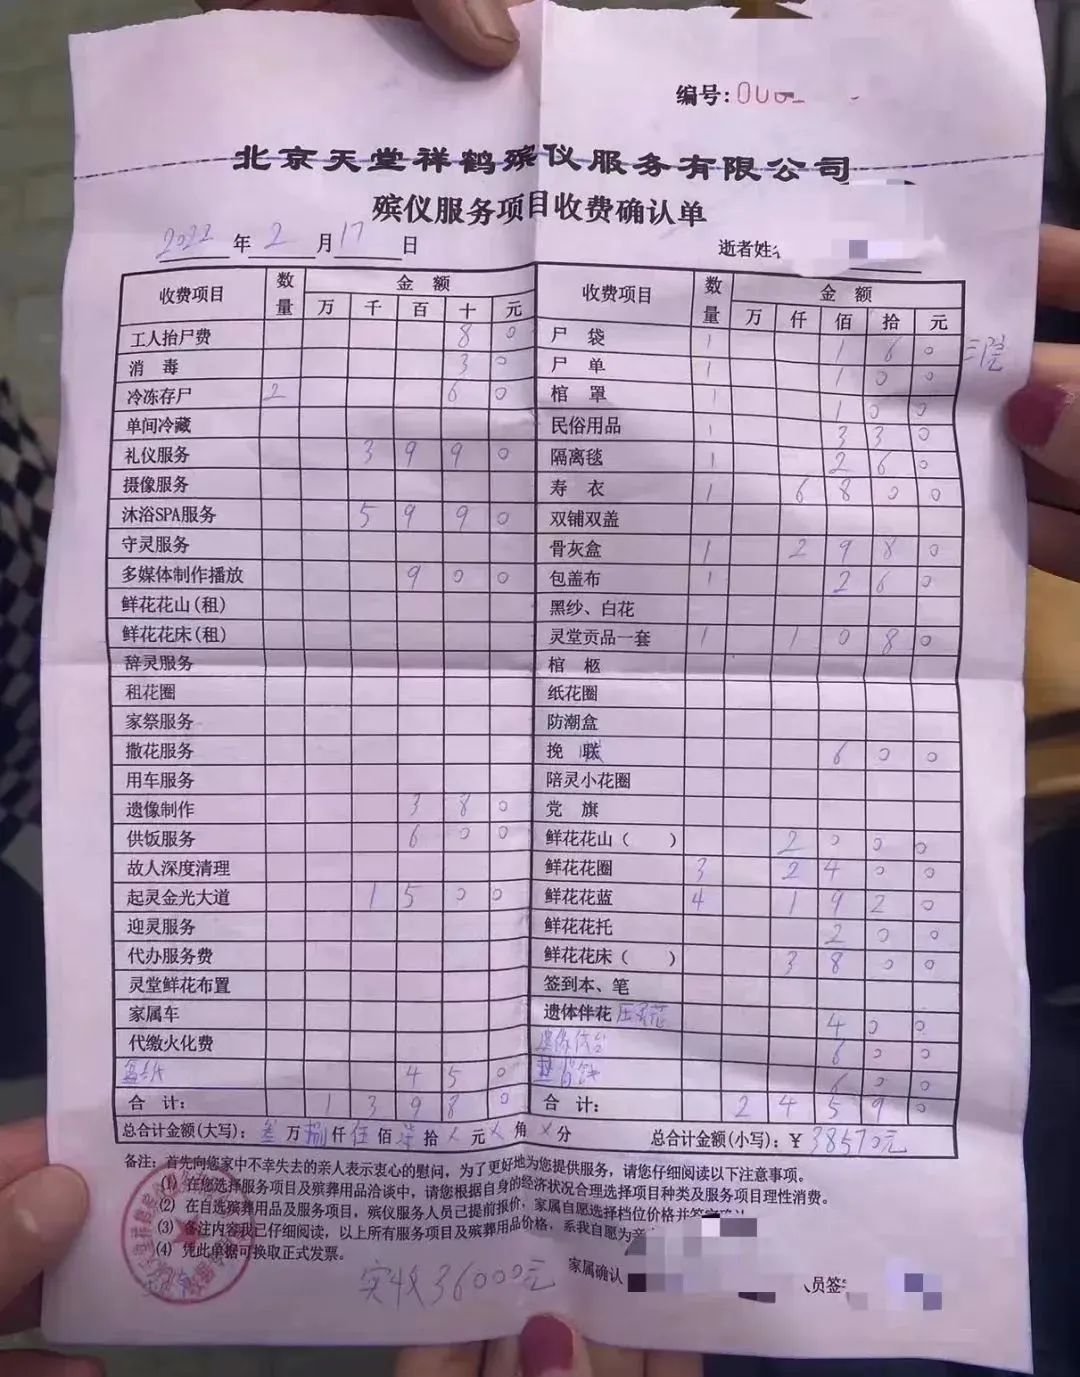 编号:
北京天堂祥鹤殡仪服务有限公司
殡仪服务项目收费确认单
2022 年 2 月 17 日 逝者姓
收费项目 数量 金额 收费项目 数量 金额
万 千 百 十 元 万 仟 佰 拾 元
工人抬尸费 8 0 尸袋 1 1 6 0
消毒 3 0 尸单 1 1 0 0
冷冻存尸 2 6 0 棺罩 1 1 0 0
单间冷藏 民俗用品 1 3 3 0
礼仪服务 3 9 9 0 隔离毯 1 2 6 0
摄像服务 寿衣 1 6 8 0 0
沐浴SPA服务 5 9 9 0 双铺双盖
守灵服务 骨灰盒 1 2 9 8 0
多媒体制作播放 9 0 0 包盖布 1 2 6 0
鲜花花山(租) 黑纱、白花
鲜花花床(租) 灵堂贡品一套 1 1 0 8 0
辞灵服务 棺柩
租花圈 纸花圈
家祭服务 防潮盒
撒花服务 挽联 6 0 0
用车服务 陪灵小花圈
遗像制作 3 8 0 党旗
供饭服务 6 0 0 鲜花花山( ) 2 0 0 0
故人深度清理 鲜花花圈 3 2 4 0 0
起灵金光大道 1 5 0 0 鲜花花蓝 4 1 9 2 0
迎灵服务 鲜花花托 2 0 0
代办服务费 鲜花花床( ) 3 8 0 0
灵堂鲜花布置 签到本、笔
家属车 遗体伴花 4 0 0
代缴火化费 6 0 0
4 5 0 6 0 0
合计: 1 3 9 8 0 合计: 2 4 5 9 0
总合计金额(大写): 叁 万 捌 仟 伍 佰 柒 拾 X 元 X 角 X 分 总合计金额(小写):¥ 38570元
备注:首先向您家中不幸失去的亲人表示衷心的慰问，为了更好地为您提供服务，请您仔细阅读以下注意事项。
(1) 在您选择服务项目及殡葬用品洽谈中，请您根据自身的经济状况合理选择项目种类及服务项目理性消费。
(2) 在自选殡葬用品及服务项目，殡仪服务人员已提前报价，家属自愿选择档位价格并签字确认
(3) 备注内容我已仔细阅读，以上所有服务项目及殡葬用品价格，系我自愿为亲
(4) 凭此单据可换取正式发票。
实收36000元 家属确认 人员签